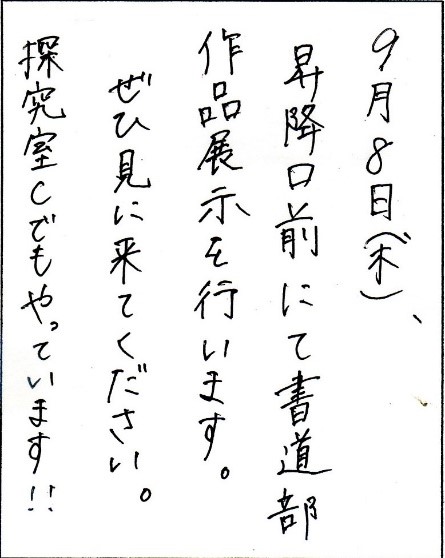 9月8日(木)、
昇降口前にて書道部
作品展示を行います。
ぜひ見に来てください。
探究室Cでもやっています!!